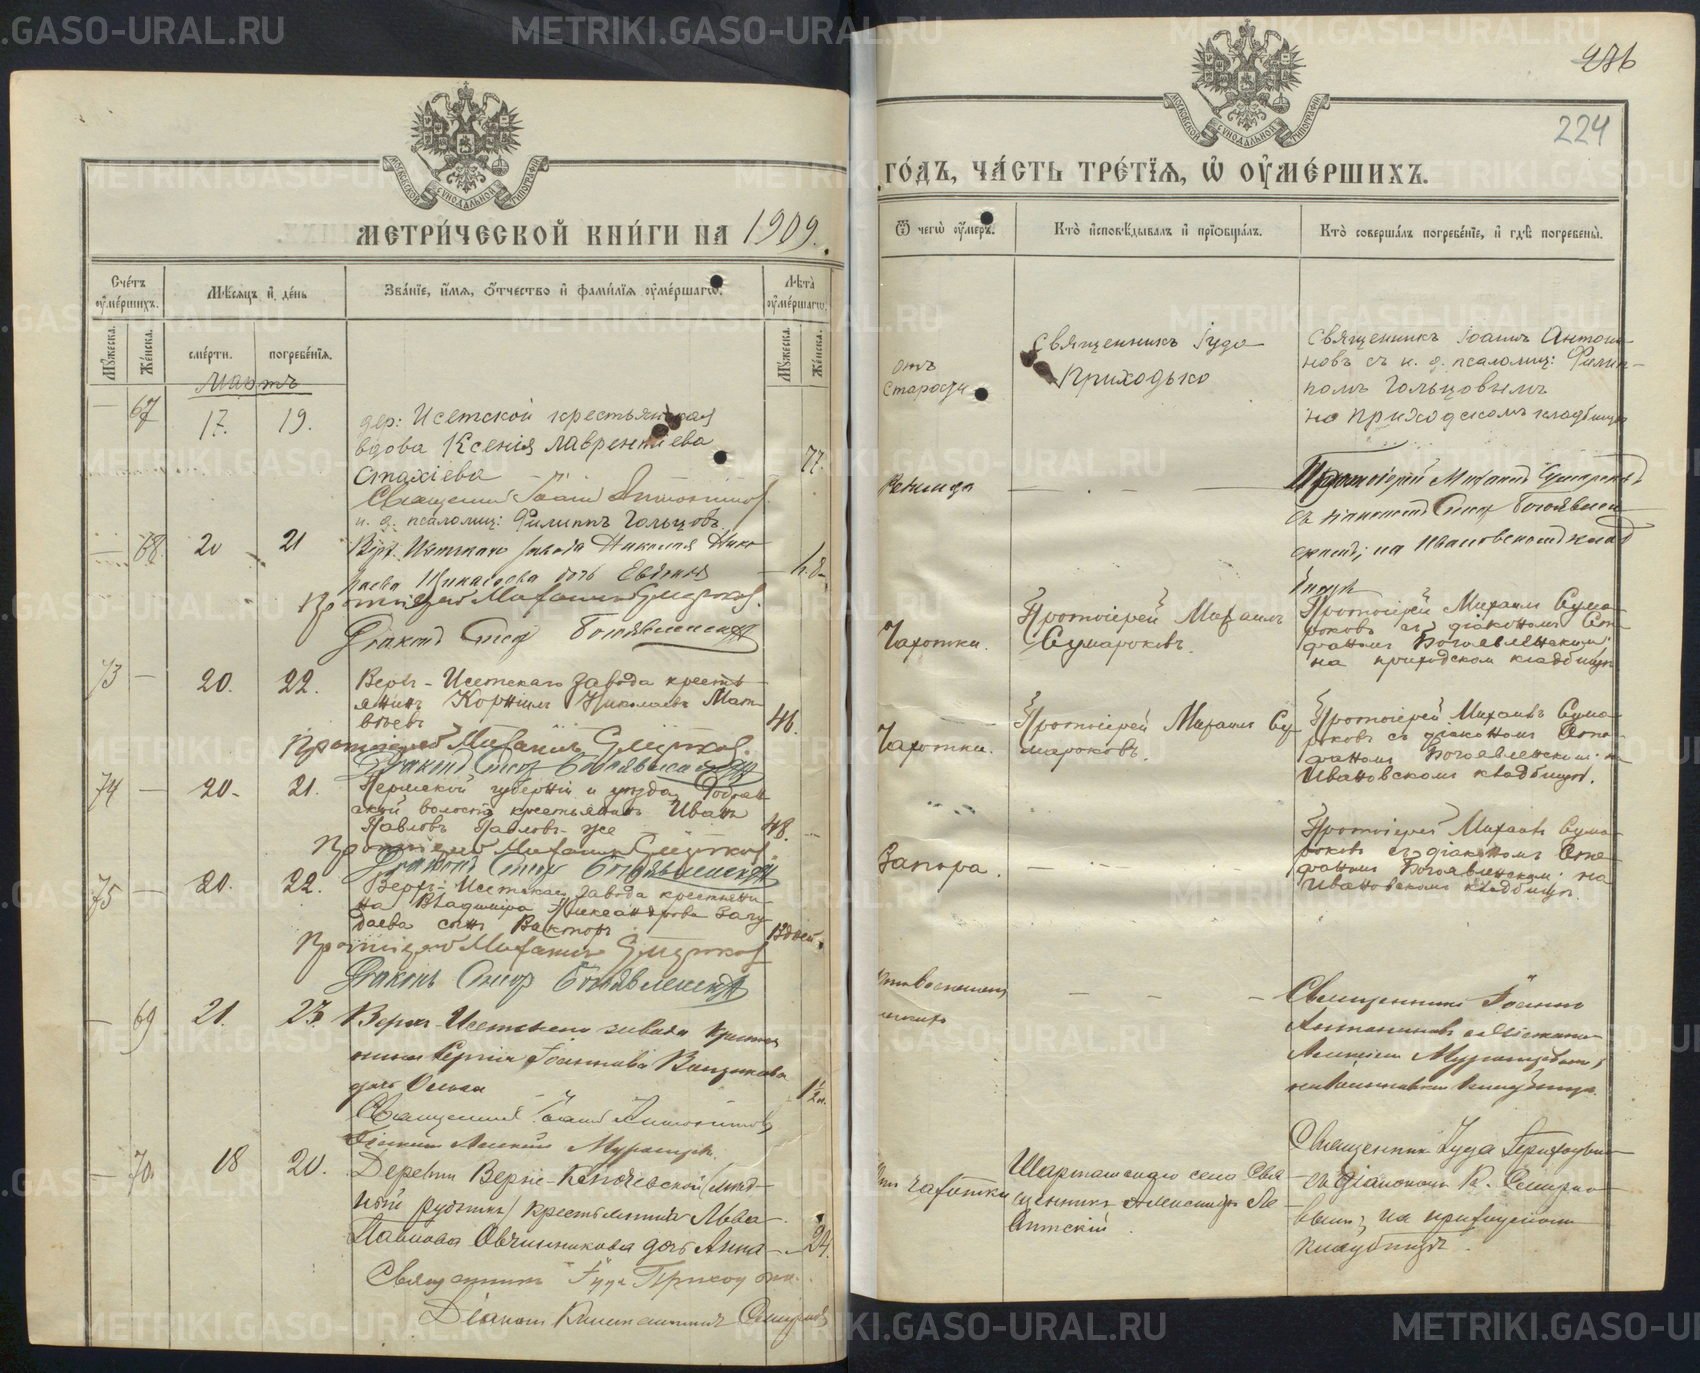 276
224
МОСКОВСКОЙ СѴНОДАЛЬНОЙ ТИПОГРАФІИ
МЕТРИ́ЧЕСКОЙ КНИ́ГИ НА 1909.
Сче́тъ оу҆ме́ршихъ.
Мѣ́сяцъ и҆ де́нь
Зва́нїе, и҆́мя, ѻ҆́тчество и҆ фами́лїя оу҆ме́ршагѡ.
Лѣ́та оу҆ме́ршагѡ.
Мꙋ́жеска.
Же́нска.
сме́рти.
погребе́нїя.
Мꙋ́жеска.
Же́нска.
Мартъ
67 17. 19. дер: Исетской крестьянская
вдова Ксенія Лаврентіева
Стахіева 77.
Священник Іоанн Антонинов
и. д. псаломщ: Филиппъ Гольцовъ
68 20 21 Верх. Исетскаго завода Николая Нико
лаева дочь Евгенія
Протоіерей Михаилъ Сумароков.
Діаконъ Стеф Богоявленскій
73 — 20. 22. Верх-Исетскаго завода кресть-
янинъ Корнилъ Николаевъ Мат-
вѣевъ 46.
Протоіерей Михаилъ Сумароков.
Діаконъ Стеф Богоявленскій
74 — 20. 21. Пермской губерніи и уѣзда, Добрян
ской волости крестьянинъ Иванъ
Павловъ Павловъ-же 48. —
Протоіерей Михаилъ Сумароков
Діаконъ Стеф Богоявленскій
75 — 20. 22. Верх-Исетскаго завода крестьяни-
на Владиміра Александрова
сынъ Викторъ
Протоіерей Михаилъ Сумароков
Діаконъ Стеф Богоявленскій
— 69 21. 23. Верхъ-Исетскаго завода крестья
нина Сергія Іоаннова
дочь Ольга 1½ м.
Священник Іоанн Антонинов
Алексій
— 70 18 20. Деревни Верхне-(мѣд-
ный рудникъ) крестьянина Льва
Павлова Овчинникова дочь Анна — 24.
Священникъ Іуда Приходько.
Діаконъ Константинъ Смирновъ
ГО́ДЪ, ЧА́СТЬ ТРЕ́ТЇЯ, Ѡ҆ ОУ҆МЕ́РШИХЪ.
МОСКОВСКОЙ СѴНОДАЛЬНОЙ ТИПОГРАФІИ
Ѿ чегѡ̀ оу҆́меръ.
Кто̀ и҆сповѣ́дывалъ и҆ прїѻбща́лъ.
Кто̀ соверша́лъ погребе́нїе, и҆ гдѣ̀ погребены̀.
отъ
старости
Священникъ Іуда
Приходько
Священникъ Іоаннъ Антони-
новъ съ и. д. псаломщ: Филип-
помъ Гольцовымъ
на приходскомъ кладбищѣ
Протоіерей Михаилъ Сумароковъ
съ діакономъ Стеф Богоявлен
скимъ; на Ивановскомъ клад
бищѣ
Чахотки.
Протоіерей Михаилъ
Сумароковъ.
Протоіерей Михаилъ Сума-
роковъ съ діакономъ Сте-
фаномъ Богоявленскимъ:
на приходском кладбищѣ
Чахотки.
Протоіерей Михаилъ Су-
мароковъ.
Протоіерей Михаилъ Сума-
роковъ съ діакономъ Сте-
фаномъ Богоявленским: на
Ивановскомъ кладбищѣ.
Запора.
Протоіерей Михаилъ Сума-
роковъ съ діакономъ Сте-
фаномъ Богоявленским: на
Ивановскомъ кладбищѣ.
Священникъ Іоаннъ
Антониновъ
Алексіем
кладбище.
чахотки
Шарташскаго села Свя-
щенникъ Александръ Ле
Священник Іуда Приходько
съ діакономъ К. Смирно-
вымъ; на приходскомъ
кладбищѣ.
METRIKI.GASO-URAL.RU